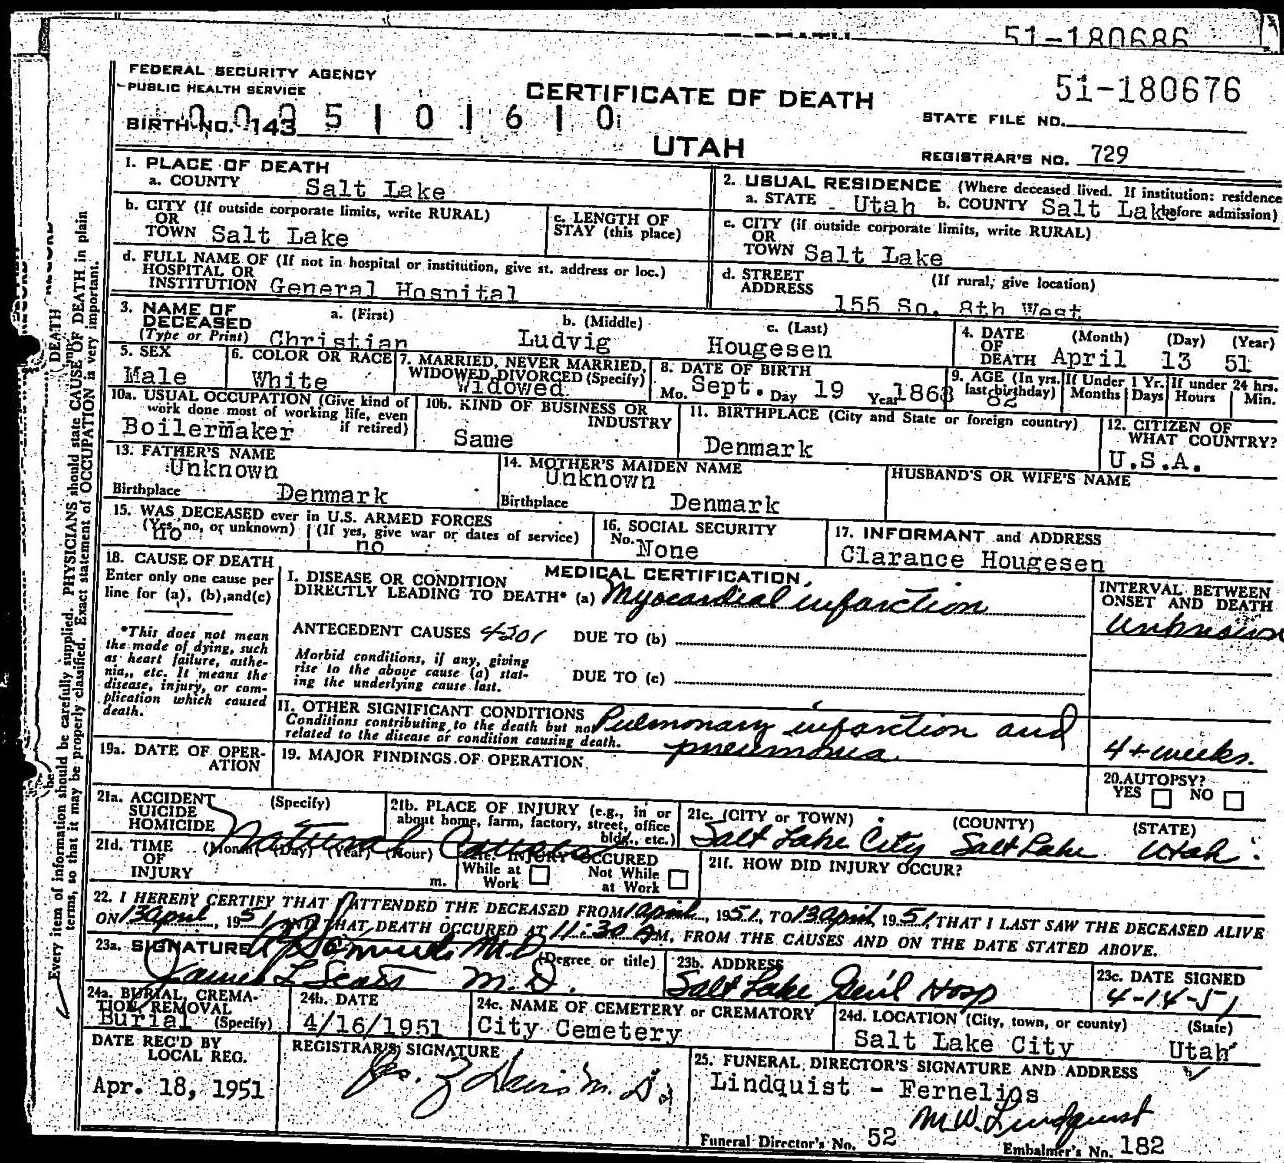 51-180686
FEDERAL SECURITY AGENCY
PUBLIC HEALTH SERVICE
CERTIFICATE OF DEATH
51-180676
STATE FILE NO.
BIRTH NO. 143
UTAH
REGISTRAR'S NO. 729
1. PLACE OF DEATH
a. COUNTY Salt Lake
2. USUAL RESIDENCE (Where deceased lived. If institution: residence before admission)
a. STATE Utah b. COUNTY Salt Lake
b. CITY (If outside corporate limits, write RURAL)
OR
TOWN Salt Lake
c. LENGTH OF
STAY (this place)
c. CITY (if outside corporate limits, write RURAL)
OR
TOWN Salt Lake
d. FULL NAME OF (If not in hospital or institution, give st. address or loc.)
HOSPITAL OR
INSTITUTION General Hospital
d. STREET (If rural; give location)
ADDRESS
155 So. 8th West
3. NAME OF
DECEASED
(Type or Print)
a. (First) b. (Middle) c. (Last)
Christian Ludvig Hougesen
4. DATE (Month) (Day) (Year)
OF
DEATH April 13 51
5. SEX
Male
6. COLOR OR RACE
White
7. MARRIED, NEVER MARRIED,
WIDOWED, DIVORCED (Specify)
Widowed
8. DATE OF BIRTH
Mo. Sept. Day 19 Year 1868
9. AGE (In yrs. last birthday) 82
If Under 1 Yr. Months Days
If under 24 hrs. Hours Min.
10a. USUAL OCCUPATION (Give kind of
work done most of working life, even
if retired)
Boilermaker
10b. KIND OF BUSINESS OR
INDUSTRY
Same
11. BIRTHPLACE (City and State or foreign country)
Denmark
12. CITIZEN OF
WHAT COUNTRY?
U.S.A.
13. FATHER'S NAME
Unknown
Birthplace Denmark
14. MOTHER'S MAIDEN NAME
Unknown
Birthplace Denmark
HUSBAND'S OR WIFE'S NAME
15. WAS DECEASED ever in U.S. ARMED FORCES
(Yes, no, or unknown) (If yes, give war or dates of service)
no no
16. SOCIAL SECURITY
No. None
17. INFORMANT and ADDRESS
Clarance Hougesen
18. CAUSE OF DEATH
Enter only one cause per
line for (a), (b), and (c)
*This does not mean
the mode of dying, such
as heart failure, asthe-
nia, etc. It means the
disease, injury, or com-
plication which caused
death.
MEDICAL CERTIFICATION
I. DISEASE OR CONDITION
DIRECTLY LEADING TO DEATH* (a) Myocardial infarction
ANTECEDENT CAUSES 4201 DUE TO (b)
Morbid conditions, if any, giving
rise to the above cause (a) stat-
ing the underlying cause last.
DUE TO (c)
INTERVAL BETWEEN
ONSET AND DEATH
Unknown
II. OTHER SIGNIFICANT CONDITIONS
Conditions contributing to the death but not
related to the disease or condition causing death.
Pulmonary infarction and
pneumonia
4+ weeks.
19a. DATE OF OPER-
ATION
19. MAJOR FINDINGS OF OPERATION
20. AUTOPSY?
YES NO
21a. ACCIDENT (Specify)
SUICIDE
HOMICIDE
Natural Causes
21b. PLACE OF INJURY (e.g., in or
about home, farm, factory, street, office
bldg., etc.)
21c. (CITY OR TOWN) (COUNTY) (STATE)
Salt Lake City Salt Lake Utah
21d. TIME (Month) (Day) (Year) (Hour)
OF
INJURY m.
21e. INJURY OCCURED
While at Work Not While at Work
21f. HOW DID INJURY OCCUR?
22. I HEREBY CERTIFY THAT I ATTENDED THE DECEASED FROM 1 April, 1951, TO 13 April, 1951, THAT I LAST SAW THE DECEASED ALIVE
ON 13 April, 1951 AND THAT DEATH OCCURED AT 11:30 AM, FROM THE CAUSES AND ON THE DATE STATED ABOVE.
23a. SIGNATURE M.D.
(Degree or title)
M.D.
23b. ADDRESS
Salt Lake Genl Hosp
23c. DATE SIGNED
4-14-51
24a. BURIAL, CREMA-
TION, REMOVAL
Burial (Specify)
24b. DATE
4/16/1951
24c. NAME OF CEMETERY or CREMATORY
City Cemetery
24d. LOCATION (City, town, or county) (State)
Salt Lake City Utah
DATE REC'D BY
LOCAL REG.
Apr. 18, 1951
REGISTRAR'S SIGNATURE
25. FUNERAL DIRECTOR'S SIGNATURE AND ADDRESS
Lindquist - Fernelios
M W Lindquist
Funeral Director's No. 52 Embalmer's No. 182
Every item of information should be carefully supplied. PHYSICIANS should state CAUSE OF DEATH in plain
terms, so that it may be properly classified. Exact statement of OCCUPATION is very important.